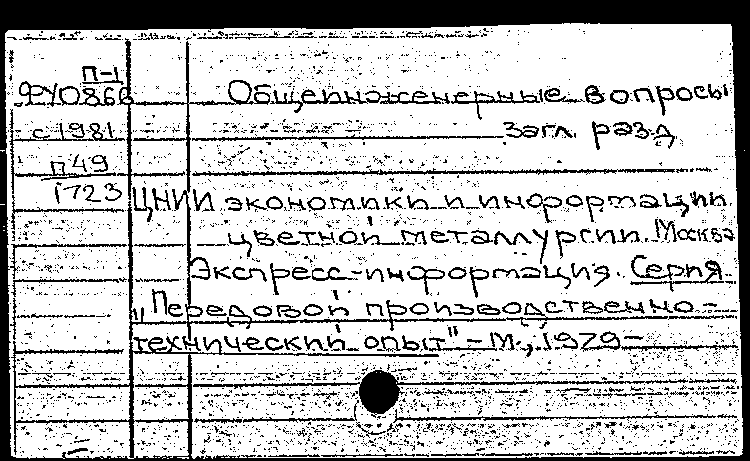 П-1
ФУ0866 Общеинженерные вопросы
с 1981 загл. разд
П 49
1723 ЦНИИ экономики и информации
цветной металлургии. Москва
Экспресс-информация. Серия
"Передовой производственно-
технический опыт" - М., 1979 -